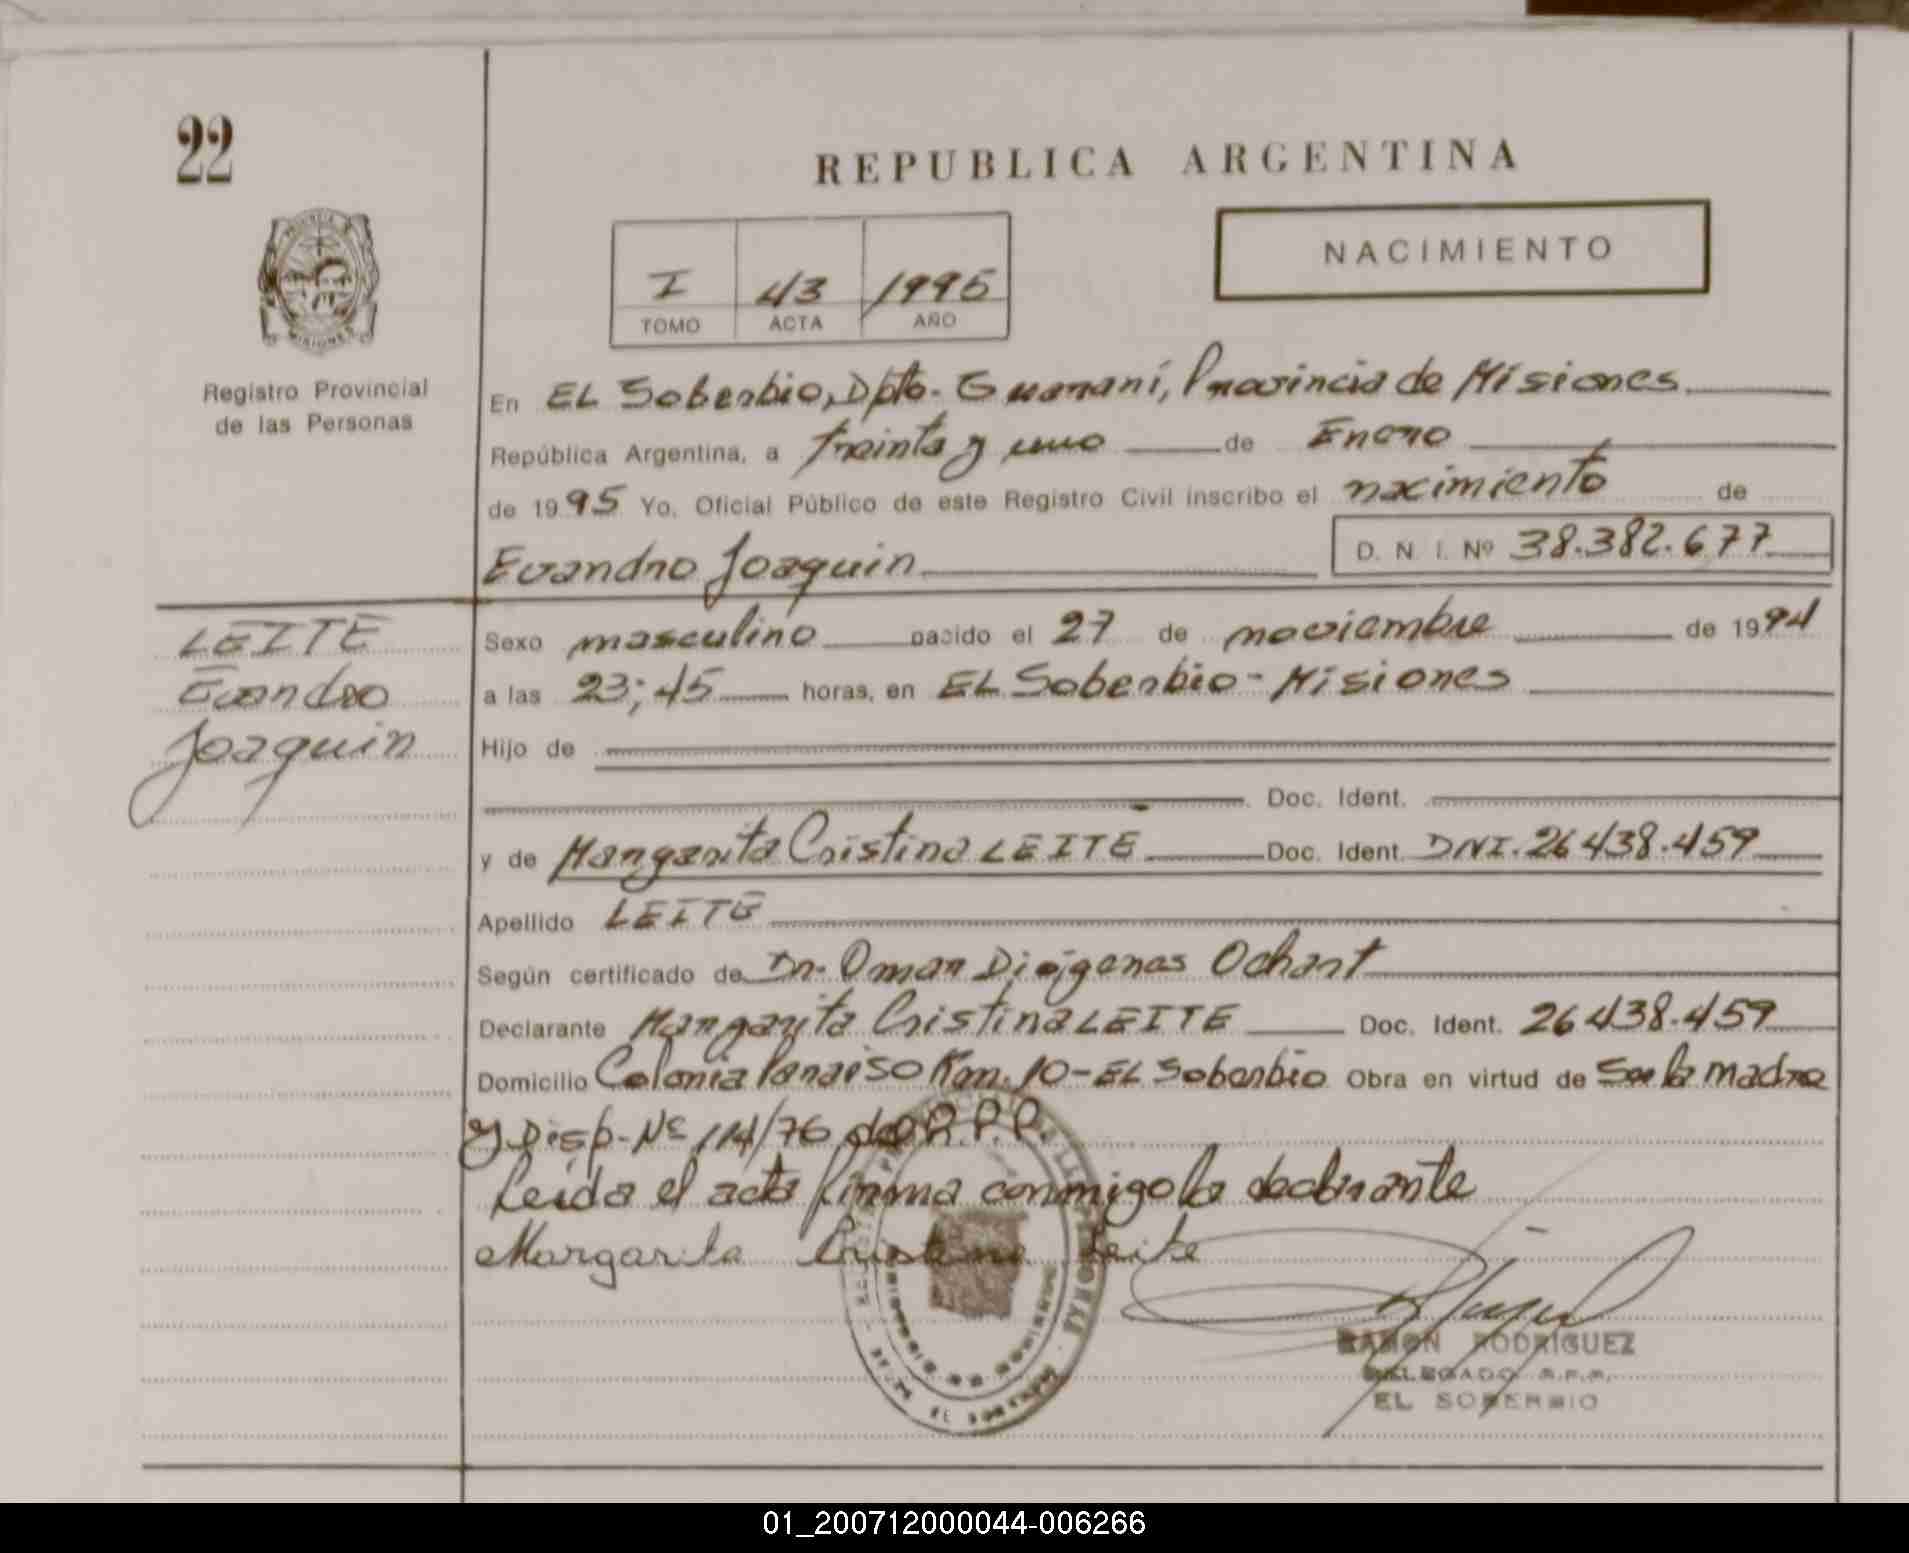 22
REPUBLICA ARGENTINA
NACIMIENTO
I 43 1995
TOMO ACTA AÑO
Registro Provincial
de las Personas
En EL Soberbio, Dpto. Guaraní, Provincia de Misiones
República Argentina, a treinta y uno de Enero
de 1995 Yo, Oficial Público de este Registro Civil inscribo el nacimiento de
Evandro Joaquin D. N. I. Nº 38.382.677
LEITE
Evandro
Joaquin
Sexo masculino nacido el 27 de noviembre de 1994
a las 23;45 horas, en EL Soberbio - Misiones
Hijo de
Doc. Ident.
y de Margarita Cristina LEITE Doc. Ident. DNI. 26438.459
Apellido LEITE
Según certificado de Dr. Omar Diógenes Ochart
Declarante Margarita Cristina LEITE Doc. Ident. 26438.459
Domicilio Colonia Paraiso Km. 10 - EL Soberbio Obra en virtud de Ser la madre
y Disp. Nº 114/76 del R.P.P.
Leida el acta firma conmigo la declarante
Margarita Cristina Leite
RAMON RODRIGUEZ
DELEGADO R.P.P.
EL SOBERBIO
01_200712000044-006266